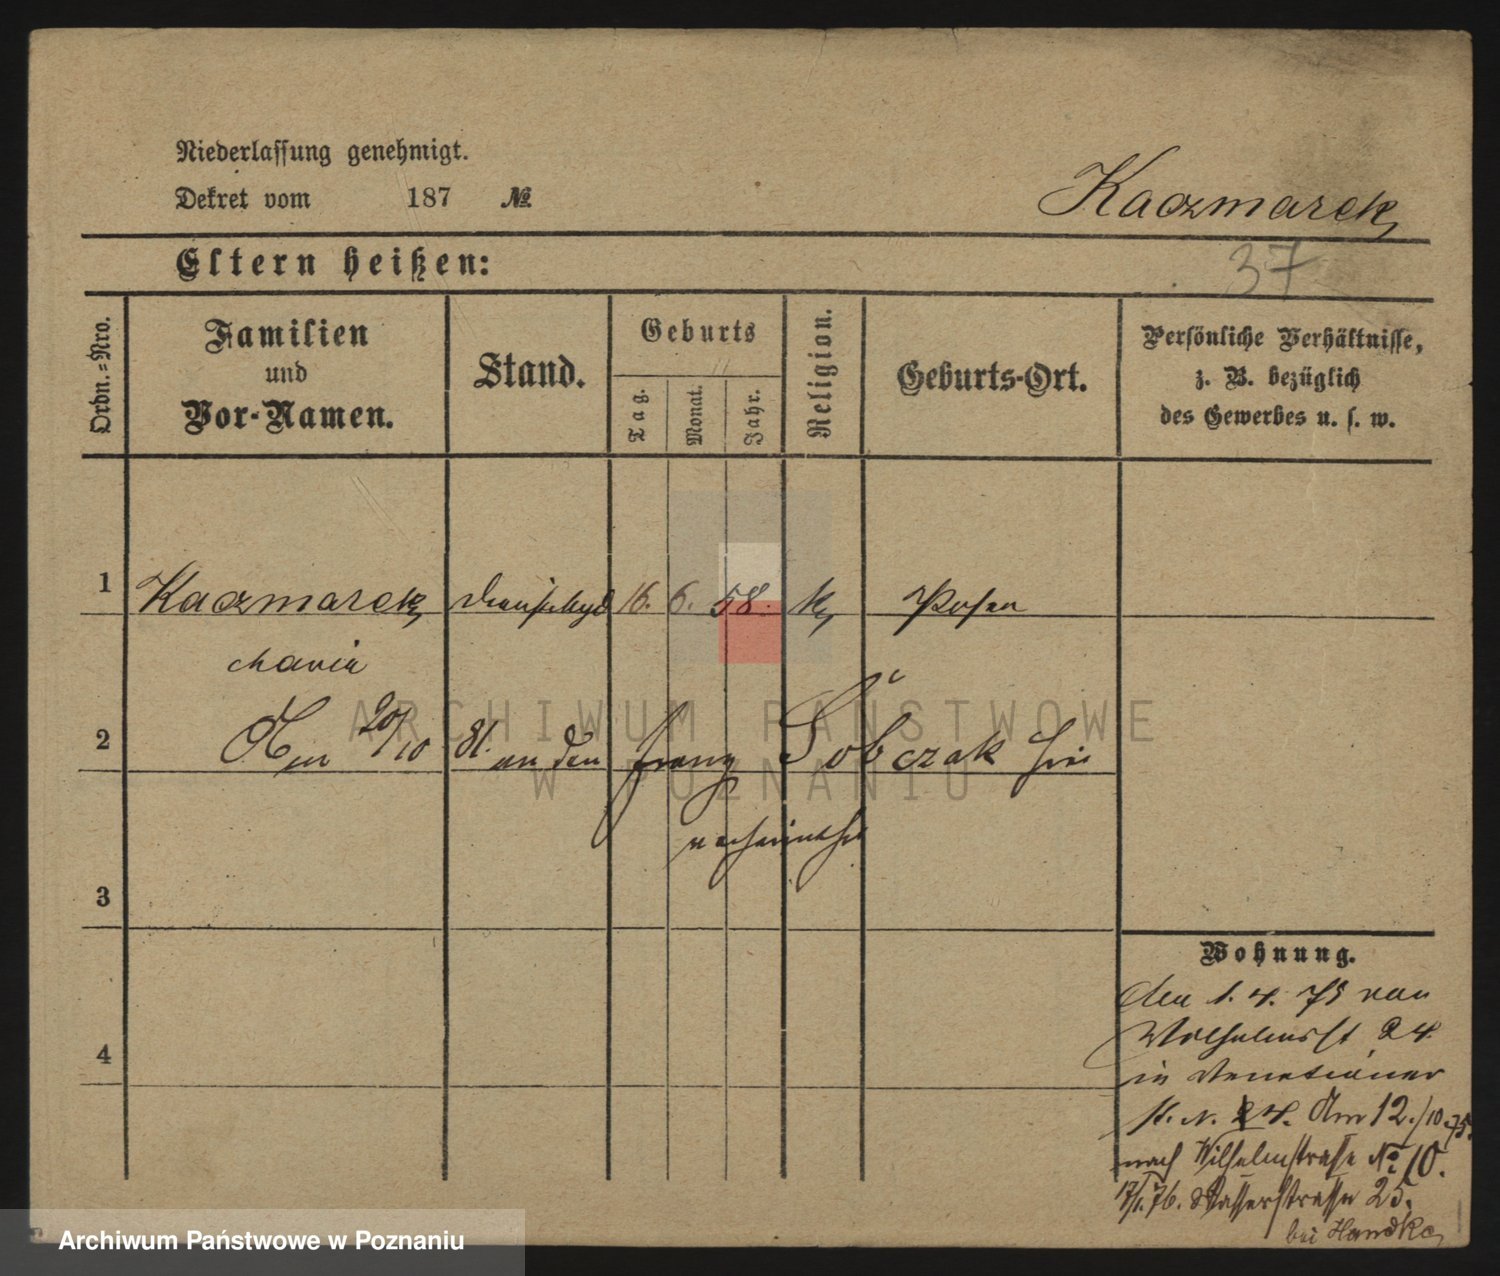 Niederlassung genehmigt.
Dekret vom 187 №
Kaczmarek
37
Eltern heißen:
Ordn.-Nro.
Familien
und
Vor-Namen.
Stand.
Geburts
Tag.
Monat.
Jahr.
Religion.
Geburts-Ort.
Persönliche Verhältnisse,
z. B. bezüglich
des Gewerbes u. s. w.
1 Kaczmarek 16. 6. 58. k Posen
Maria
2 Am 20/10 81. an den Franz Sobczak hier
verheirathet
3
4
Wohnung.
den 1. 4. 75 von
Wilhelmsst 24
in Venetianer
st. N. 4. Am 12./10.75.
nach Wilhelmstrasse No 10.
17/1.76. Wasserstrasse 25.
bei Handke
ARCHIWUM PAŃSTWOWE
W POZNANIU
Archiwum Państwowe w Poznaniu